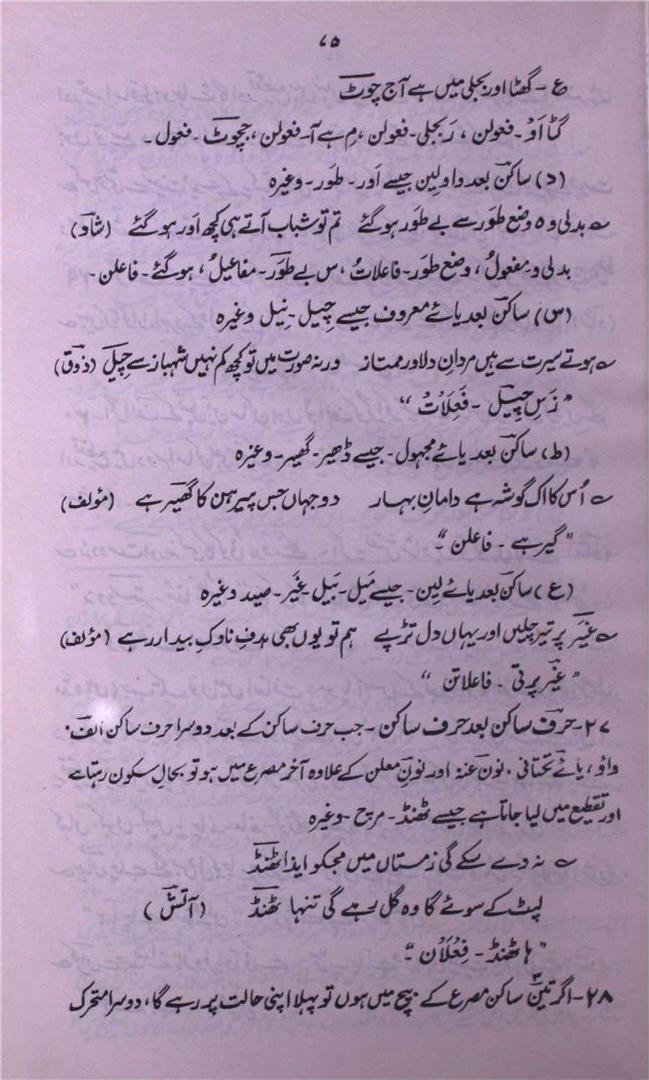 ۷۵
ع - گھٹا اور بجلی میں ہے آج چوٹ
گٹا اَوْ - فعولن ، رَ بجلی - فعولن ، مِ ہے آ - فعولن ، جچوٹ - فعول -
(د) ساکن بعد واو لین جیسے اَور - طَور - وغیرہ
بدلی وہ وضع طَور سے بے طَور ہو گئے تم تو شباب آتے ہی کچھ اَور ہو گئے (شاؔد)
بدلی وِ مفعولُ ، وضع طور - فاعلاتُ ، س بے طَور - مفاعیلُ ، ہو گئے - فاعلن -
(س) ساکن بعد یائے معروف جیسے چِیل - نِیل وغیرہ
ہوتے سیرت سے ہیں مردانِ دلاور ممتاز ورنہ صورت میں تو کچھ کم نہیں شہباز سے چیل (ذوؔق)
" زَسِ چیل - فَعِلَاتُ "
(ط) ساکن بعد یائے مجہول - جیسے ڈھیر - گھیر - وغیرہ
اُس کا اک گوشہ ہے دامانِ بہار دو جہاں جس پیرہن کا گھیر ہے (مؤلف)
" گیر ہے - فاعلن "-
(ع) ساکن بعد یائے لین - جیسے مَیل - بَیل - غَیر - صید وغیرہ
غَیر پر تیر چلیں اور یہاں دل تڑپے ہم تو یوں بھی ہدفِ ناوکِ بیدار رہے (مؤلف)
" غَیر پرتی - فاعلاتن "
۲۷ - حرف ساکن بعد حرف ساکن - جب حرف ساکن کے بعد دوسرا حرف ساکن الف،
واؤ ، یائے تحتانی ، نون غنہ اور نونِ معلن کے علاوہ آخر مصرع میں ہو تو بحالِ سکون رہتا ہے
اور تقطیع میں لیا جاتا ہے جیسے ٹھنڈ - مریخ - وغیرہ
نہ دے سکے گی زمستاں میں مجکو ایذا ٹھنڈ
لپٹ کے سوئے گا وہ گل سہے گی تنہا ٹھنڈ (آتشؔ)
" ہا ٹھنڈ - فِعْلَان "-
۲۸ - اگر تین ۳ ساکن مصرع کے بیچ میں ہوں تو پہلا اپنی حالت پر رہے گا، دوسرا متحرک